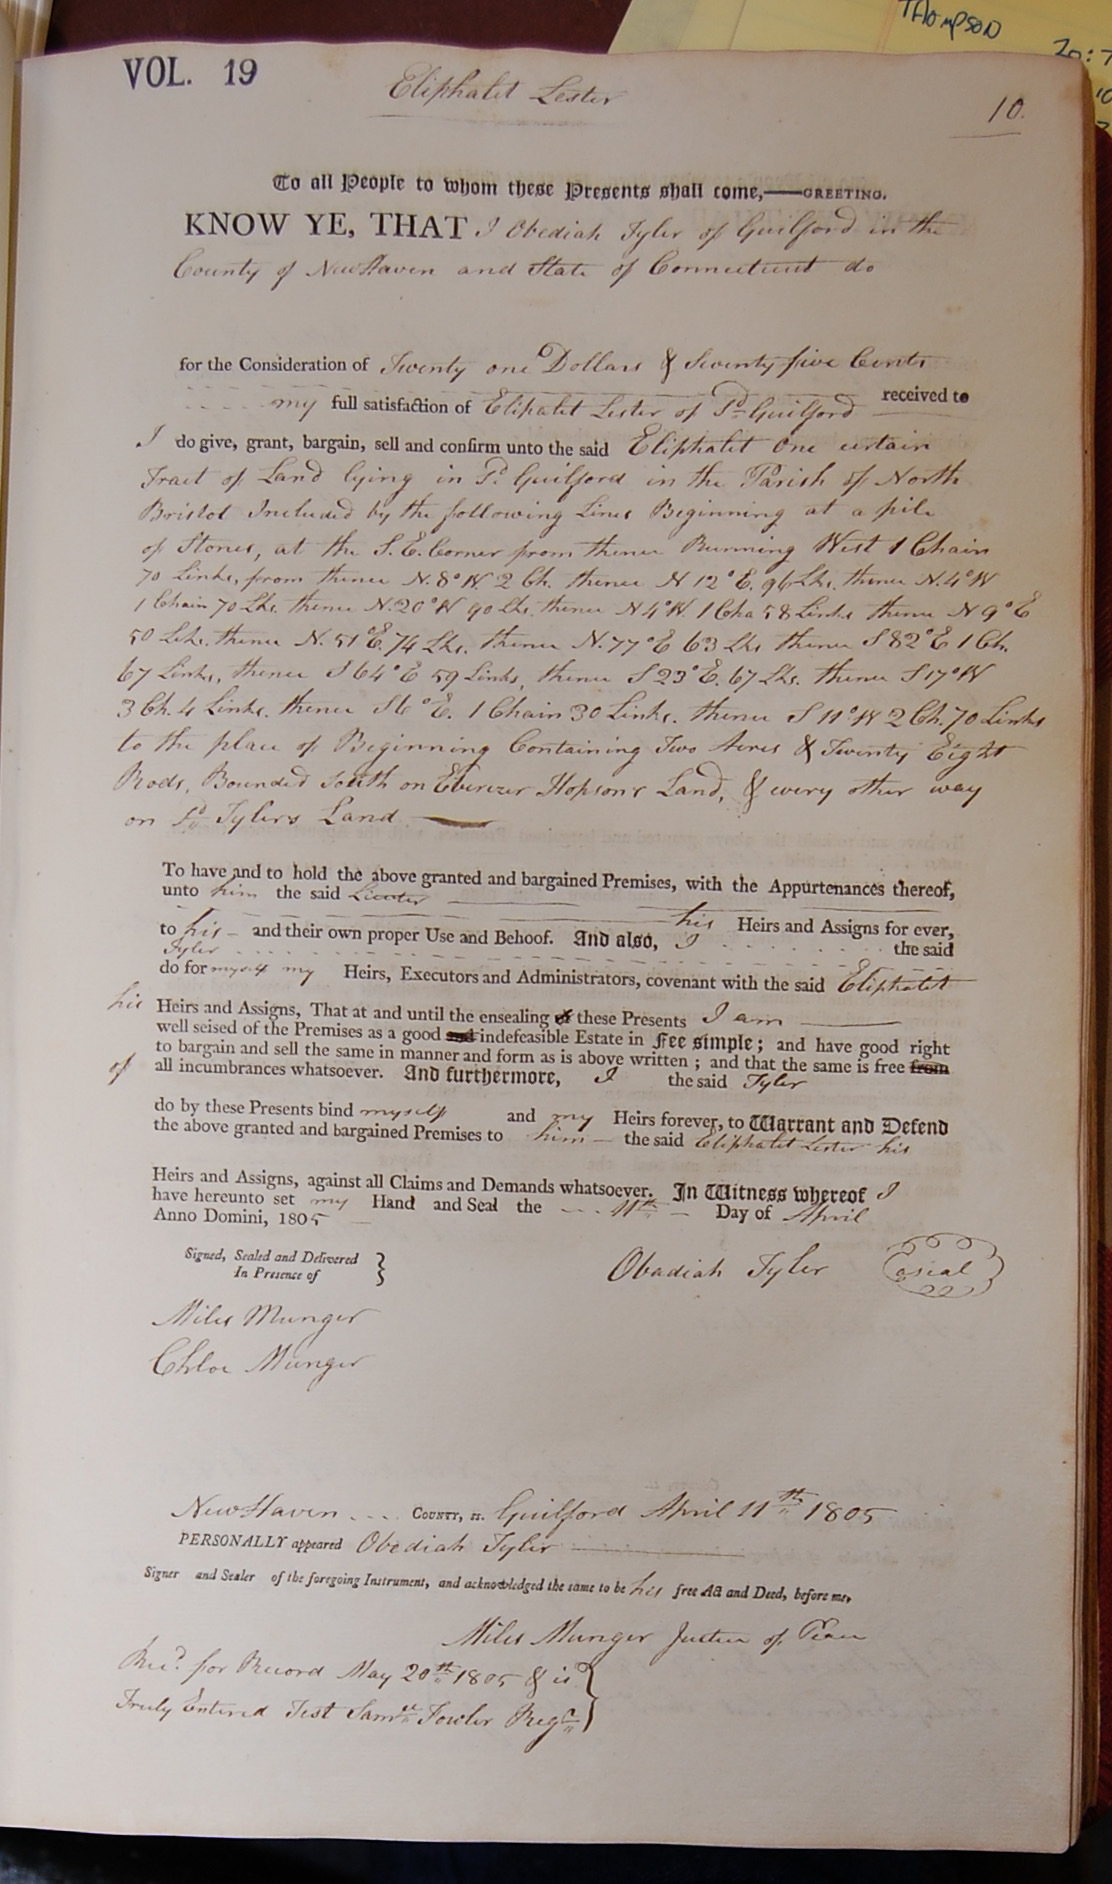 THOMPSON
20:7
10
VOL. 19
Eliphalet Lester
10.
To all People to whom these Presents shall come,——GREETING.
KNOW YE, THAT I Obediah Tyler of Guilford in the
County of New Haven and State of Connecticut do
for the Consideration of Twenty one Dollars & Seventy five Cents
my full satisfaction of Eliphalet Lester of Sd Guilford received to
I do give, grant, bargain, sell and confirm unto the said Eliphalet One certain
Tract of Land lying in Sd Guilford in the Parish of North
Bristol Included by the following Lines Beginning at a pile
of Stones, at the S.E. Corner from thence Running West 1 Chain
70 Links, from thence N. 8° W 2 Ch. thence N 12° E. 96 Lks. thence N. 4° W
1 Chain 70 Lks. thence N. 20° W 90 Lks. thence N 4° W. 1 Cha 58 Links thence N 9° E
50 Lks. thence N. 51° E. 74 Lks. thence N. 77° E 63 Lks thence S 82° E 1 Ch.
67 Links, thence S 64° E 59 Links, thence S 23° E. 67 Lks. thence S 17° W
3 Ch. 4 Links. thence S 6° E. 1 Chain 30 Links. thence S 11° W 2 Ch. 70 Links
to the place of Beginning Containing Two Acres & Twenty Eight
Rods, Bounded South on Ebenezer Hopson's Land, & every other way
on Sd Tylers Land
To have and to hold the above granted and bargained Premises, with the Appurtenances thereof,
unto him the said
his Heirs and Assigns for ever,
to his and their own proper Use and Behoof. And also, I the said
Tyler
do for myself my Heirs, Executors and Administrators, covenant with the said Eliphalet
his Heirs and Assigns, That at and until the ensealing of these Presents I am
well seised of the Premises as a good and indefeasible Estate in Fee simple; and have good right
to bargain and sell the same in manner and form as is above written; and that the same is free from
of all incumbrances whatsoever. And furthermore, I the said Tyler
do by these Presents bind myself and my Heirs forever, to Warrant and Defend
the above granted and bargained Premises to him the said Eliphalet Lester his
Heirs and Assigns, against all Claims and Demands whatsoever. In Witness whereof I
have hereunto set my Hand and Seal the 11th Day of April
Anno Domini, 1805
Signed, Sealed and Delivered
In Presence of
Obadiah Tyler seal
Miles Munger
Chloe Munger
New Haven County, ss. Guilford April 11th 1805
PERSONALLY appeared Obediah Tyler
Signer and Sealer of the foregoing Instrument, and acknowledged the same to be his free Act and Deed, before me,
Miles Munger Justice of Peace
Recd. for Record May 20th 1805 & is
Truly Entered Test Saml Fowler Regr